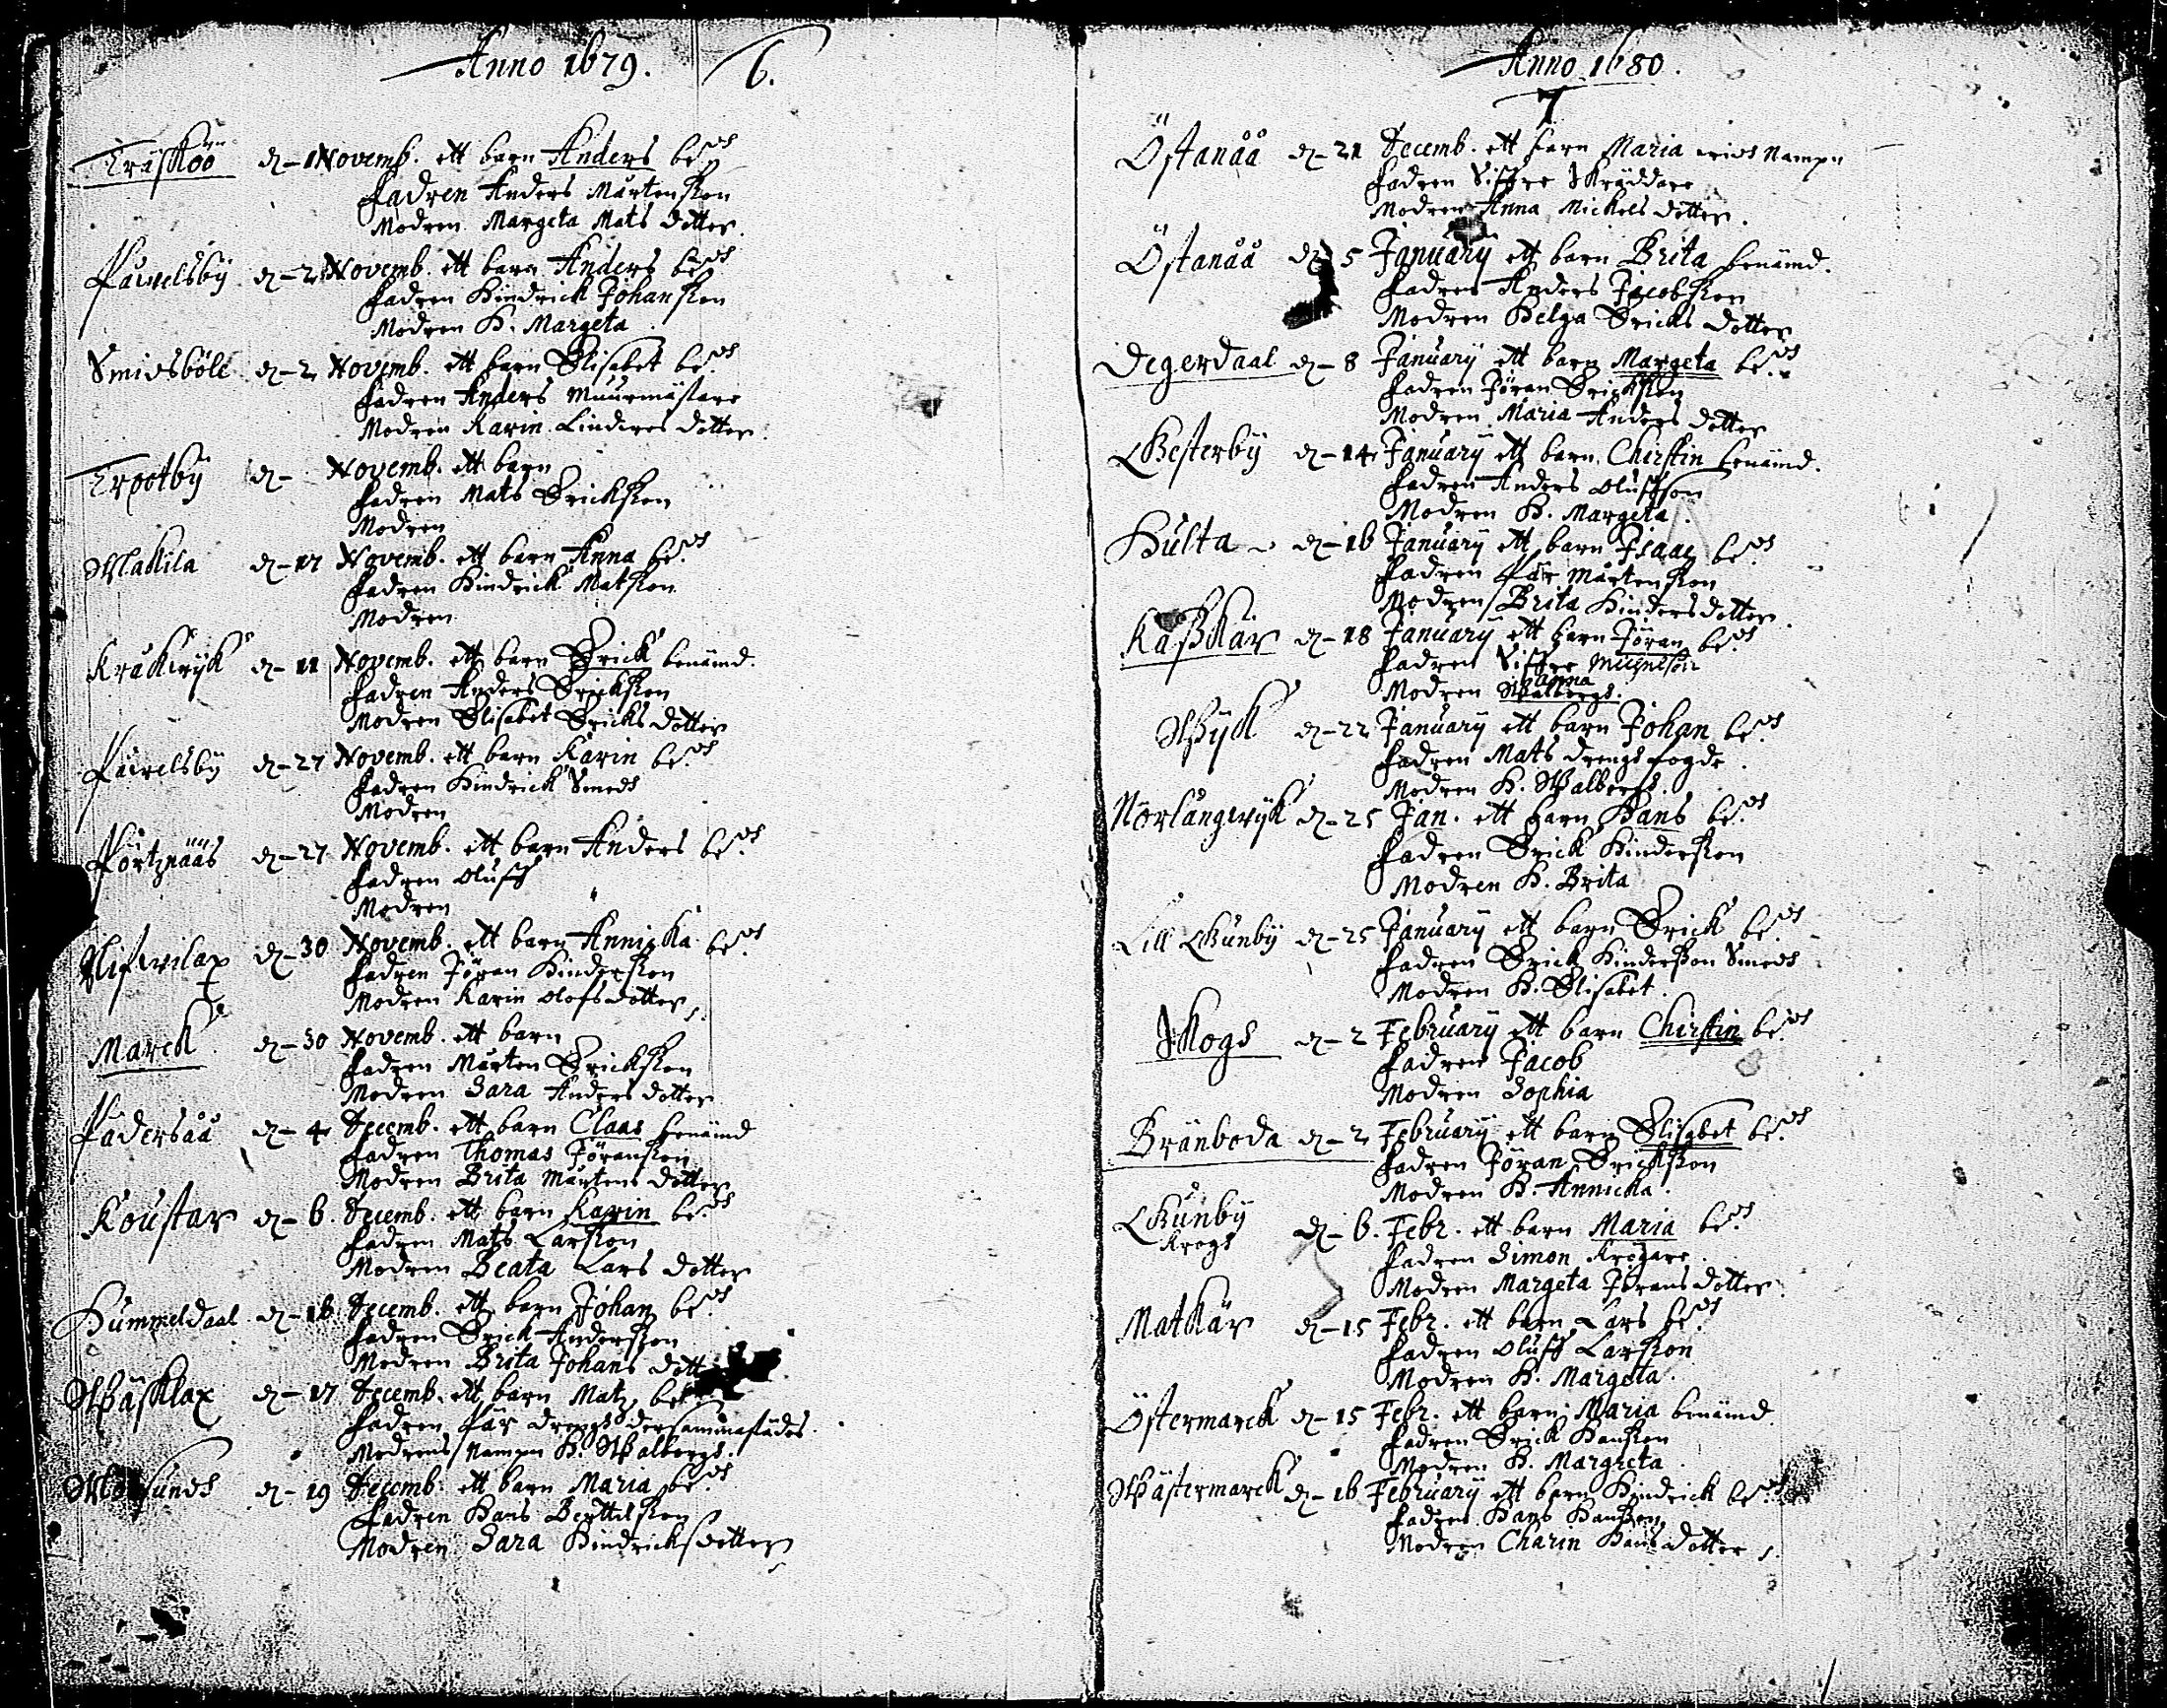 Anno 1679. 6.
Träsköö d. 1 Novemb. ett barn Anders be:d
Fadren Anders Mårtensson
Modren Margeta Mats dotter.
Påwelsbÿ d. 2 Novemb. ett barn Anders be:d
Fadren Hindrick Johansson
Modren H. Margeta
Smidsböle d. 2 Novemb. ett barn Elisabet be:d
Fadren Anders Muurmästare
Modren Karin Linders dotter.
Trootbÿ d. Novemb. ett barn
Fadren Mats Ericksson
Modren
Makila d. 17 Novemb. ett barn Anna be:d
Fadren Hindrick Matsson
Modren
Kråkwÿk d. 11 Novemb. ett barn Erick benämd.
Fadren Anders Ericksson
Modren Elisabet Ericks dotter
Påwelsbÿ d. 27 Novemb. ett barn Karin be:d
Fadren Hindrick Smeds
Modren
Pörtznääs d. 27 Novemb. ett barn Anders be:d
Fadren Oluff
Modren
d. 30 Novemb. ett barn Annicka be:d
Fadren Jöran Hindersson
Modren Karin Olofsdotter
Marck d. 30 Novemb. ett barn
Fadren Mårten Ericksson
Modren Sara Anders dotter
Padersåå d. 4 Decemb. ett barn Claas benämd
Fadren Thomas Jöransson
Modren Brita Mårtens dotter
Koustar d. 6. Decemb. ett barn Karin be:d
Fadren Mats Larsson
Modren Beata Lars dotter
Hummeldaal d. 16 Decemb. ett barn Johan be:d
Fadren Erick Andersson
Modren Brita Johans dott
Wästlax d. 17 Decemb. ett barn Matz be
Fadren Pär drengs dersammastädes.
Modrens Nampn H. Walborgs.
d. 19 Decemb. ett barn Maria be:d
Fadren Hans Berttilsson
Modren Sara Hindricksdotter
Anno 1680.
7
Östanåå d. 21 Decemb. ett barn Maria wids Nampn
Fadren Siffre Skräddare
Modren Anna Michels dotter.
Östanåå d. 5 Januarÿ ett barn Brita benämd.
Fadren Anders Jacobsson
Modren Helga Ericks dotter
Degerdaal d. 8 Januarÿ ett barn Margeta be:d
Fadren Jöran Ericksson
Modren Maria Anders dotter
Westerbÿ d. 14 Januarÿ ett barn Chirstin benämd.
Fadren Anders Oluffson
Modren H. Margeta.
Hulta d. 16 Januarÿ ett barn Isaac be:d
Fadren Pär Mårtensson
Modren Brita Hindersdotter.
Kaßkär d. 18 Januarÿ ett barn Jöran be:d
Fadren Siffre
Modren Walborgs. Anna
Wÿk d. 22 Januarÿ ett barn Johan be:d
Fadren Mats drengsfogde.
Modren H. Walborgs.
Norlångwÿk d. 25 Jan. ett barn Hans be:d
Fadren Erick Hindersson
Modren H. Brita
Lill Bunbÿ d. 25 Januarÿ ett barn Erick be:d
Fadren Erick Hindersson Smeds
Modren H. Elisabet.
Skogs d. 2 Februarÿ ett barn Chirstin be:d
Fadren Jacob
Modren Sophia
Bränboda d. 2 Februarÿ ett barn Elisabet be:d
Fadren Jöran Ericksson
Modren H. Annicka.
Bunbÿ d. 6. Febr. ett barn Maria be:d
Krogs Fadren Simon Krögare.
Modren Margeta Jörans dotter.
Matkär d. 15 Febr. ett barn Lars be:d
Fadren Oluff Larsson
Modren H. Margeta.
Östermarck d. 15 Febr. ett barn Maria benämd.
Fadren Erick Hansson
Modren H. Margreta.
Wästermarck d. 16 Februarÿ ett barn Hindrick be:d
Fadren Hans Hansson
Modren Charin Hans dotter